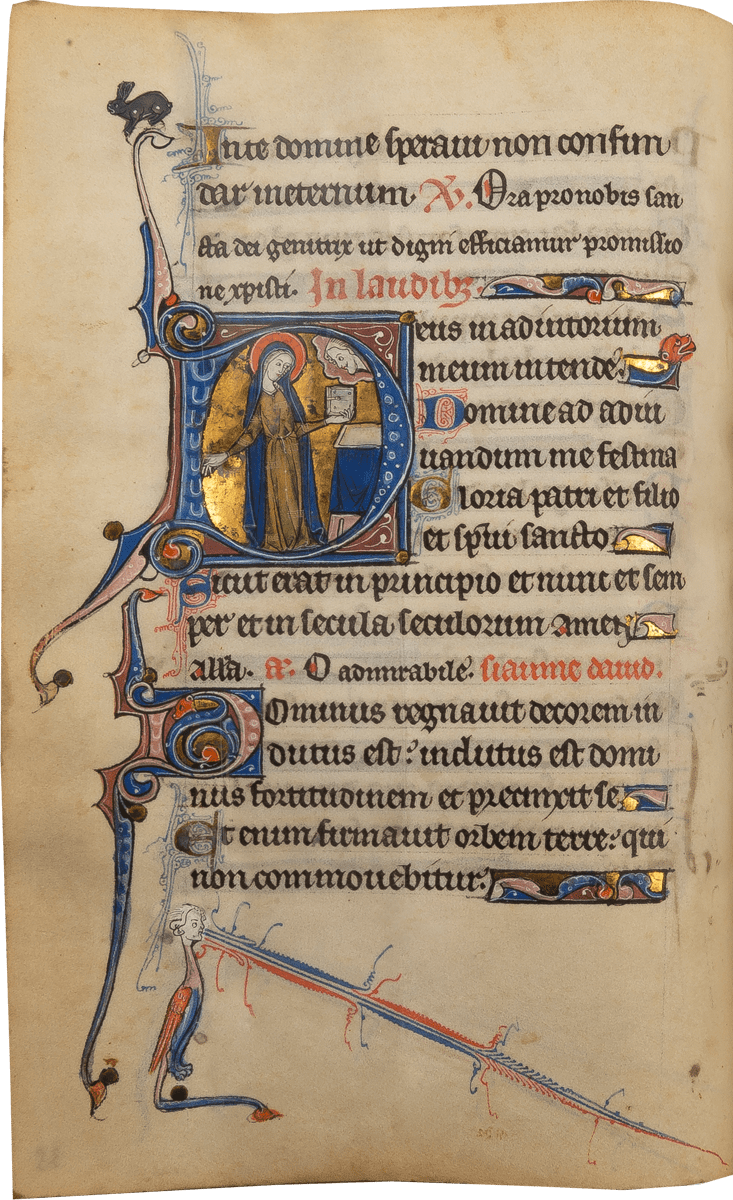 In te domine speraui non confun
dar in eternum. V. Ora pro nobis san
cta dei genitrix ut digni efficiamur promissio
ne xpisti. In laudibz.
Deus in adiutorium
meum intende.
Domine ad adiu
uandum me festina
Gloria patri et filio
et spui sancto
Sicut erat in principio et nunc et sem
per et in secula seculorum amen
alla. a. O admirabile.
Dominus regnauit decorem in
dutus est: indutus est domi
nus fortitudinem et precinxit se
Et enim firmauit orbem terre: qui
non commouebitur.